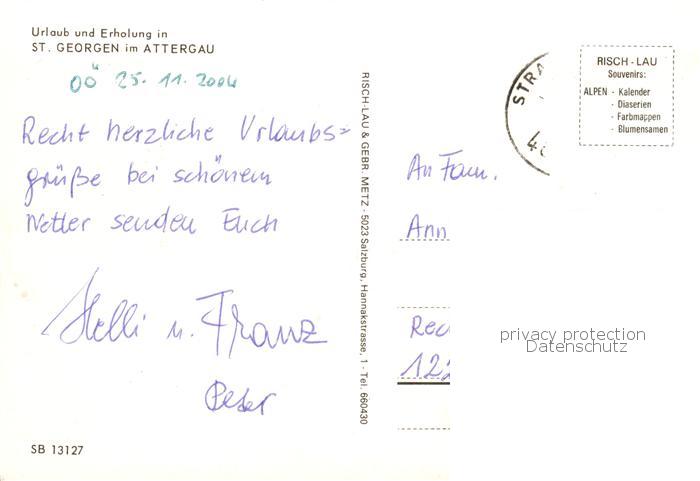 Urlaub und Erholung in
ST. GEORGEN im ATTERGAU
OÖ 25.11.2004
Recht herzliche Urlaubs=
grüße bei schönem
Wetter senden Euch
Helli u. Franz
Peter
SB 13127
RISCH-LAU & GEBR. METZ · 5023 Salzburg, Hannakstrasse, 1 · Tel. 660430
STRA
RISCH-LAU
Souvenirs:
ALPEN - Kalender
- Diaserien
- Farbmappen
- Blumensamen
An Fam.
Ann
Rec
122
privacy protection
Datenschutz